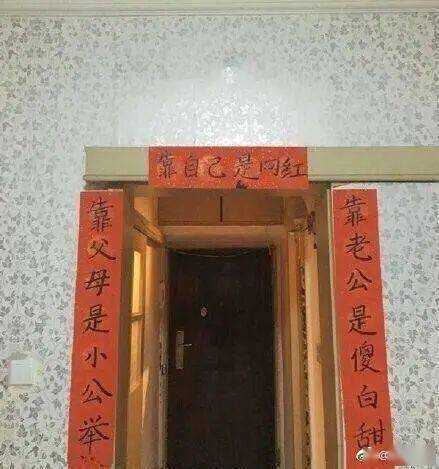 靠自己是网红
靠父母是小公举
靠老公是傻白甜
@